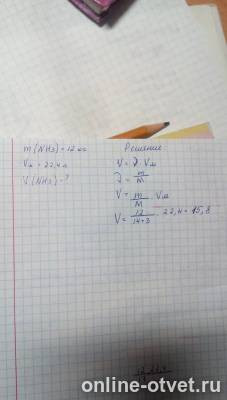 m(NH3) = 12 кг
Vm = 22,4 л
V(NH3) - ?
Решение
V = ν · Vm
ν = m/M
V = m/M · Vm
V = 12/14+3 · 22,4 = 15,8
online-otvet.ru